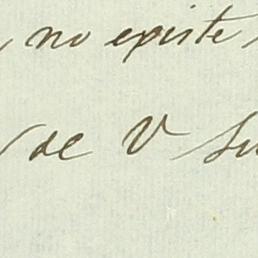 no existe
de V